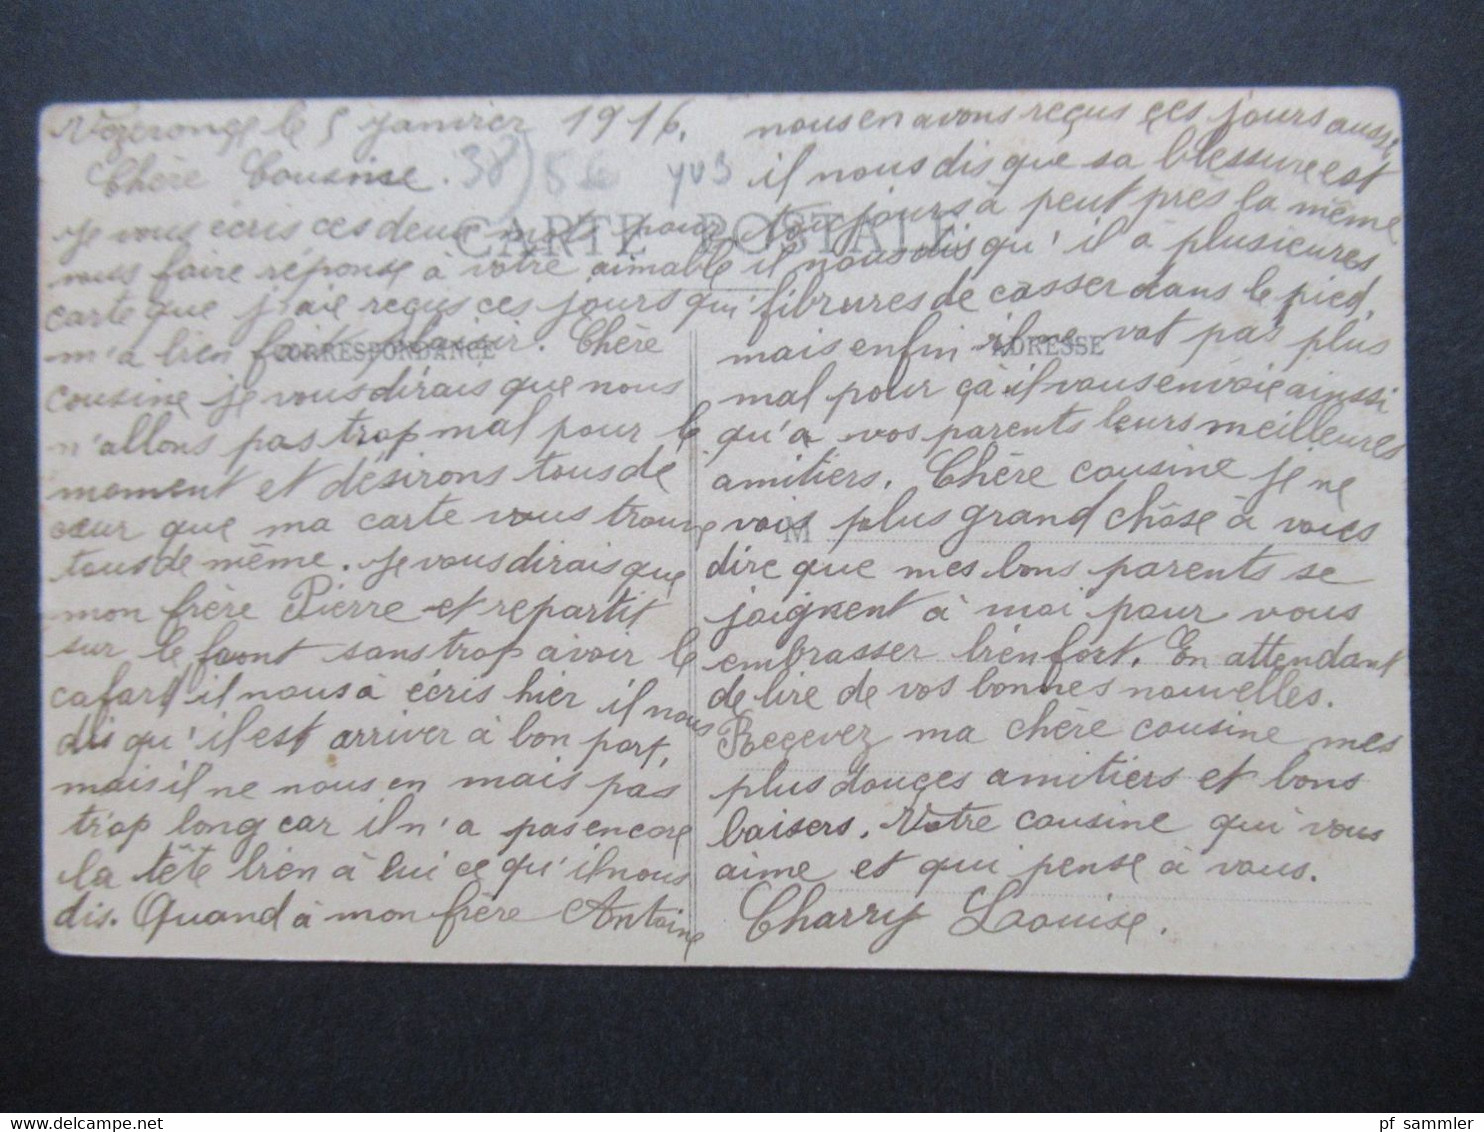 Vézeronce le 5 janvier 1916.
Chère Cousine. 38) 56
CARTE POSTALE
je vous écris ces deux mots pour
vous faire réponse à votre aimable
carte que j'aie reçus ces jours qu'
m'a bien fait plaisir. Chère
CORRESPONDANCE
cousine je vous dirais que nous
n'allons pas trop mal pour le
moment et désirons tous de
cœur que ma carte vous trouve
tous de même. je vous dirais que
mon frère Pierre et repartit
sur le front sans trop avoir le
cafard il nous à écris hier il nous
dis qu'il est arriver à bon port,
mais il ne nous en mais pas
trop long car il n'a pas encore
la tête bien à lui ce qu'il nous
dis. Quand à mon frère Antoine
nous en avons reçus ces jours aussi
il nous dis que sa blessure est
toujours à peut près la même
il nous dis qu'il à plusieures
fibrures de casser dans le pied,
mais enfin il ne vat pas plus
ADRESSE
mal pour ça il vous envoie ainssi
qu'a vos parents leurs meilleures
amitiers. Chère cousine je ne
M
vois plus grand chôse à voies
dire que mes bons parents se
joignent à moi pour vous
embrasser bien fort. En attendant
de lire de vos bonnes nouvelles.
Reçevez ma chère cousine mes
plus douçes amitiers et bons
baisers. Votre cousine qui vous
aime et qui pense à vous.
Charry Louise.
pf sammler